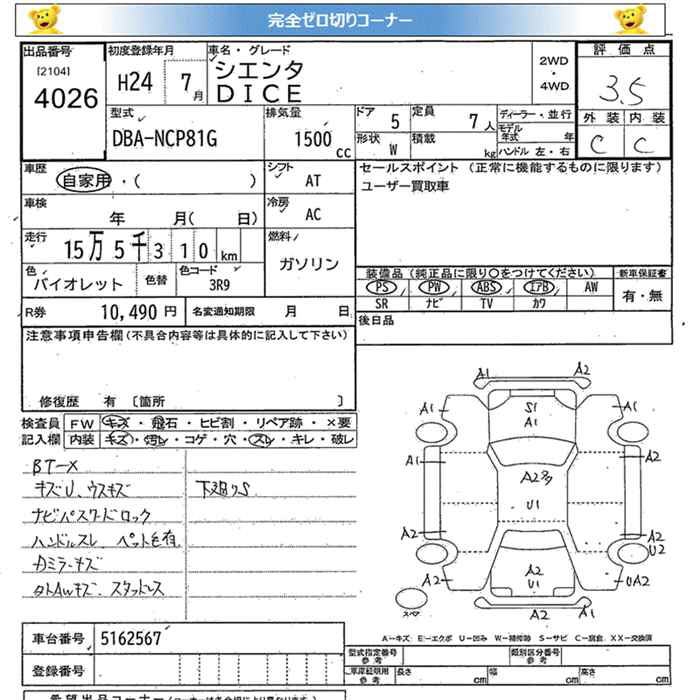 完全ゼロ切りコーナー
出品番号
[2104]
4026
初度登録年月
H24 7月
車名・グレード
シエンタ
DICE
2WD
・
4WD
評価点
3.5
外装 内装
C C
型式
DBA-NCP81G
排気量
1500 CC
ドア 5
定員 7人
形状 W
積載 kg
ディーラー・並行
モデル年式 年
ハンドル 左・右
車歴
自家用・( )
シフト
AT
セールスポイント (正常に機能するものに限ります)
ユーザー買取車
車検
年 月( 日)
冷房
AC
走行
15万5千310km
燃料
ガソリン
色
バイオレット
色替
色コード
3R9
装備品(純正品に限り○をつけてください)
新車保証書
PS PW ABS エアB AW
SR ナビ TV カワ
有・無
R券 10,490円
名変通知期限 月 日
後日品
注意事項申告欄(不具合内容等は具体的に記入して下さい)
修復歴 有 〔箇所 〕
検査員
記入欄
FW キズ・飛石・ヒビ割・リペア跡・×要
内装 キズ・汚レ・コゲ・穴・スレ・キレ・破レ
BT-X
キズU、ウスキズ
下廻りS
ナビパスワードロック
ハンドルスレ ペット毛有
Dミラーキズ
タトAWキズ、スタッドレス
A1 A2
A1 S1 A1
A1
A1 A2
A2多
U1
A2 A2
U2
A2 A2 UA2
U1
スペア
A2 A2
A-キズ E-エクボ U-凹み W-補修跡 S-サビ C-腐食 XX-交換済
車台番号 5162567
登録番号
型式指定番号
参考
類別区分番号
参考
車庫証明用
参考
長さ cm
幅 cm
高さ cm
希望出品コーナー